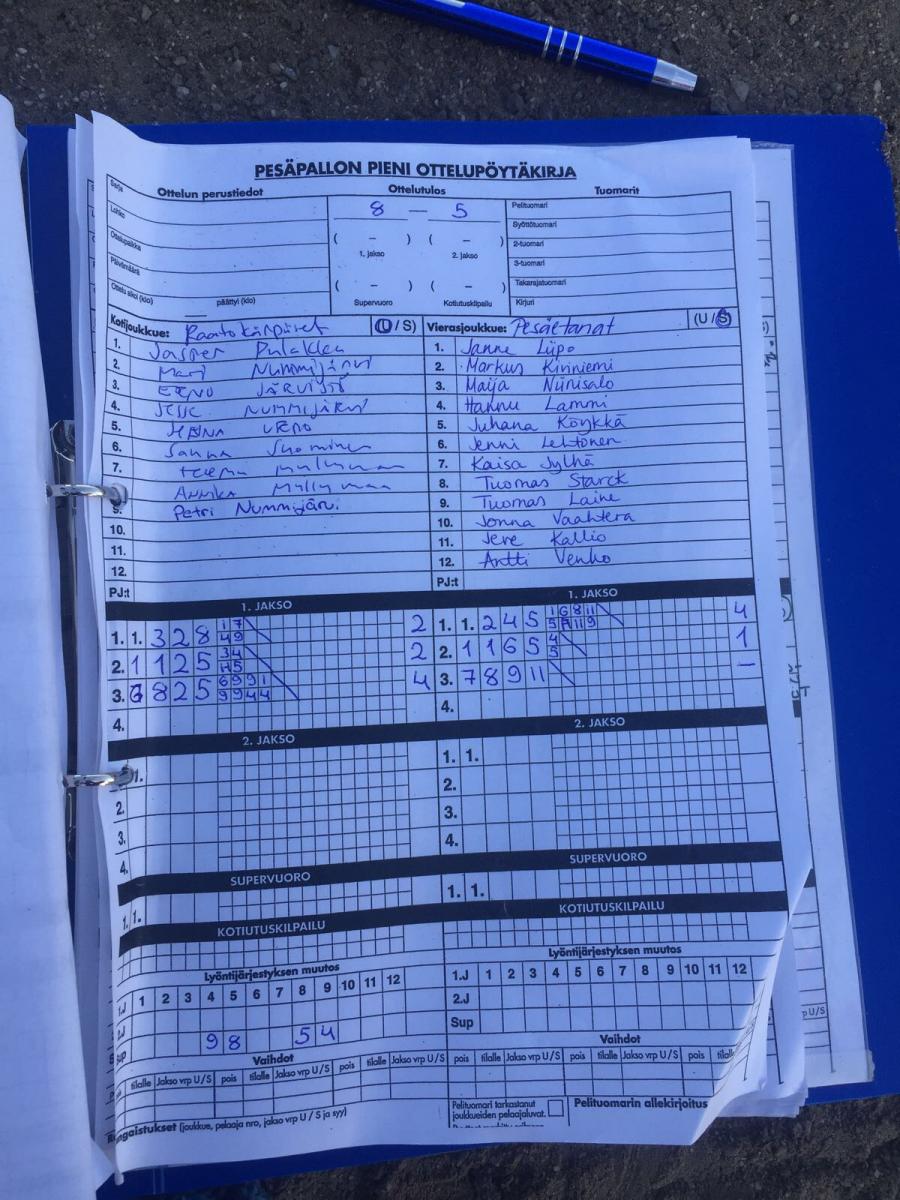 PESÄPALLON PIENI OTTELUPÖYTÄKIRJA
Ottelun perustiedot Ottelutulos Tuomarit
Sarja
Lohko
Ottelupaikka
Päivämäärä
Ottelu alkoi (klo) päättyi (klo)
8 — 5
( – ) ( – )
1. jakso 2. jakso
( – ) ( – )
Supervuoro Kotiutuskilpailu
Pelituomari
Syöttötuomari
2-tuomari
3-tuomari
Takarajatuomari
Kirjuri
Kotijoukkue: Raatokärpäset (U / S)
1. Jasper
2. Mari Nummijärvi
3. EERO
4. JESSE NUMMIJÄRVI
5. HENNA
6. Sanna Suominen
7. Teemu
ANNIKA
9. Petri Nummijärvi
10.
11.
12.
PJ:t
Vierasjoukkue: Pesäetanat (U / S)
1. Janne Liipo
2. Markus Kiviniemi
3. Maija Niinisalo
4. Hannu Lammi
5. Juhana Köykkä
6. Jenni Lehtonen
7. Kaisa Jylhä
8. Tuomas Starck
9. Tuomas Laine
10. Jonna Vaahtera
11. Jere Kallio
12. Antti Venho
PJ:t
1. JAKSO
1. 1. 3 2 8 1 7 4 9 2
2. 1 1 2 5 3 4 4 5 2
3. 6 8 2 5 6 9 9 1 9 9 4 4 4
4.
1. JAKSO
1. 1. 2 4 5 1 6 8 11 5 7 11 9 4
2. 1 1 6 5 4 5 1
3. 7 8 9 11 –
4.
2. JAKSO
1.
2.
3.
4.
2. JAKSO
1. 1.
2.
3.
4.
SUPERVUORO
1. 1.
SUPERVUORO
1. 1.
KOTIUTUSKILPAILU
KOTIUTUSKILPAILU
Lyöntijärjestyksen muutos
1.J 1 2 3 4 5 6 7 8 9 10 11 12
2.J
Sup 9 8 5 4
Lyöntijärjestyksen muutos
1.J 1 2 3 4 5 6 7 8 9 10 11 12
2.J
Sup
Vaihdot
tilalle Jakso vrp U / S pois tilalle Jakso vrp U / S pois tilalle Jakso vrp U / S
Vaihdot
pois tilalle Jakso vrp U / S pois tilalle Jakso vrp U / S pois tilalle Jakso vrp U / S
Rangaistukset (joukkue, pelaaja nro, jakso vrp U / S ja syy)
Pelituomari tarkastanut joukkueiden pelaajaluvat.
Pelituomarin allekirjoitus